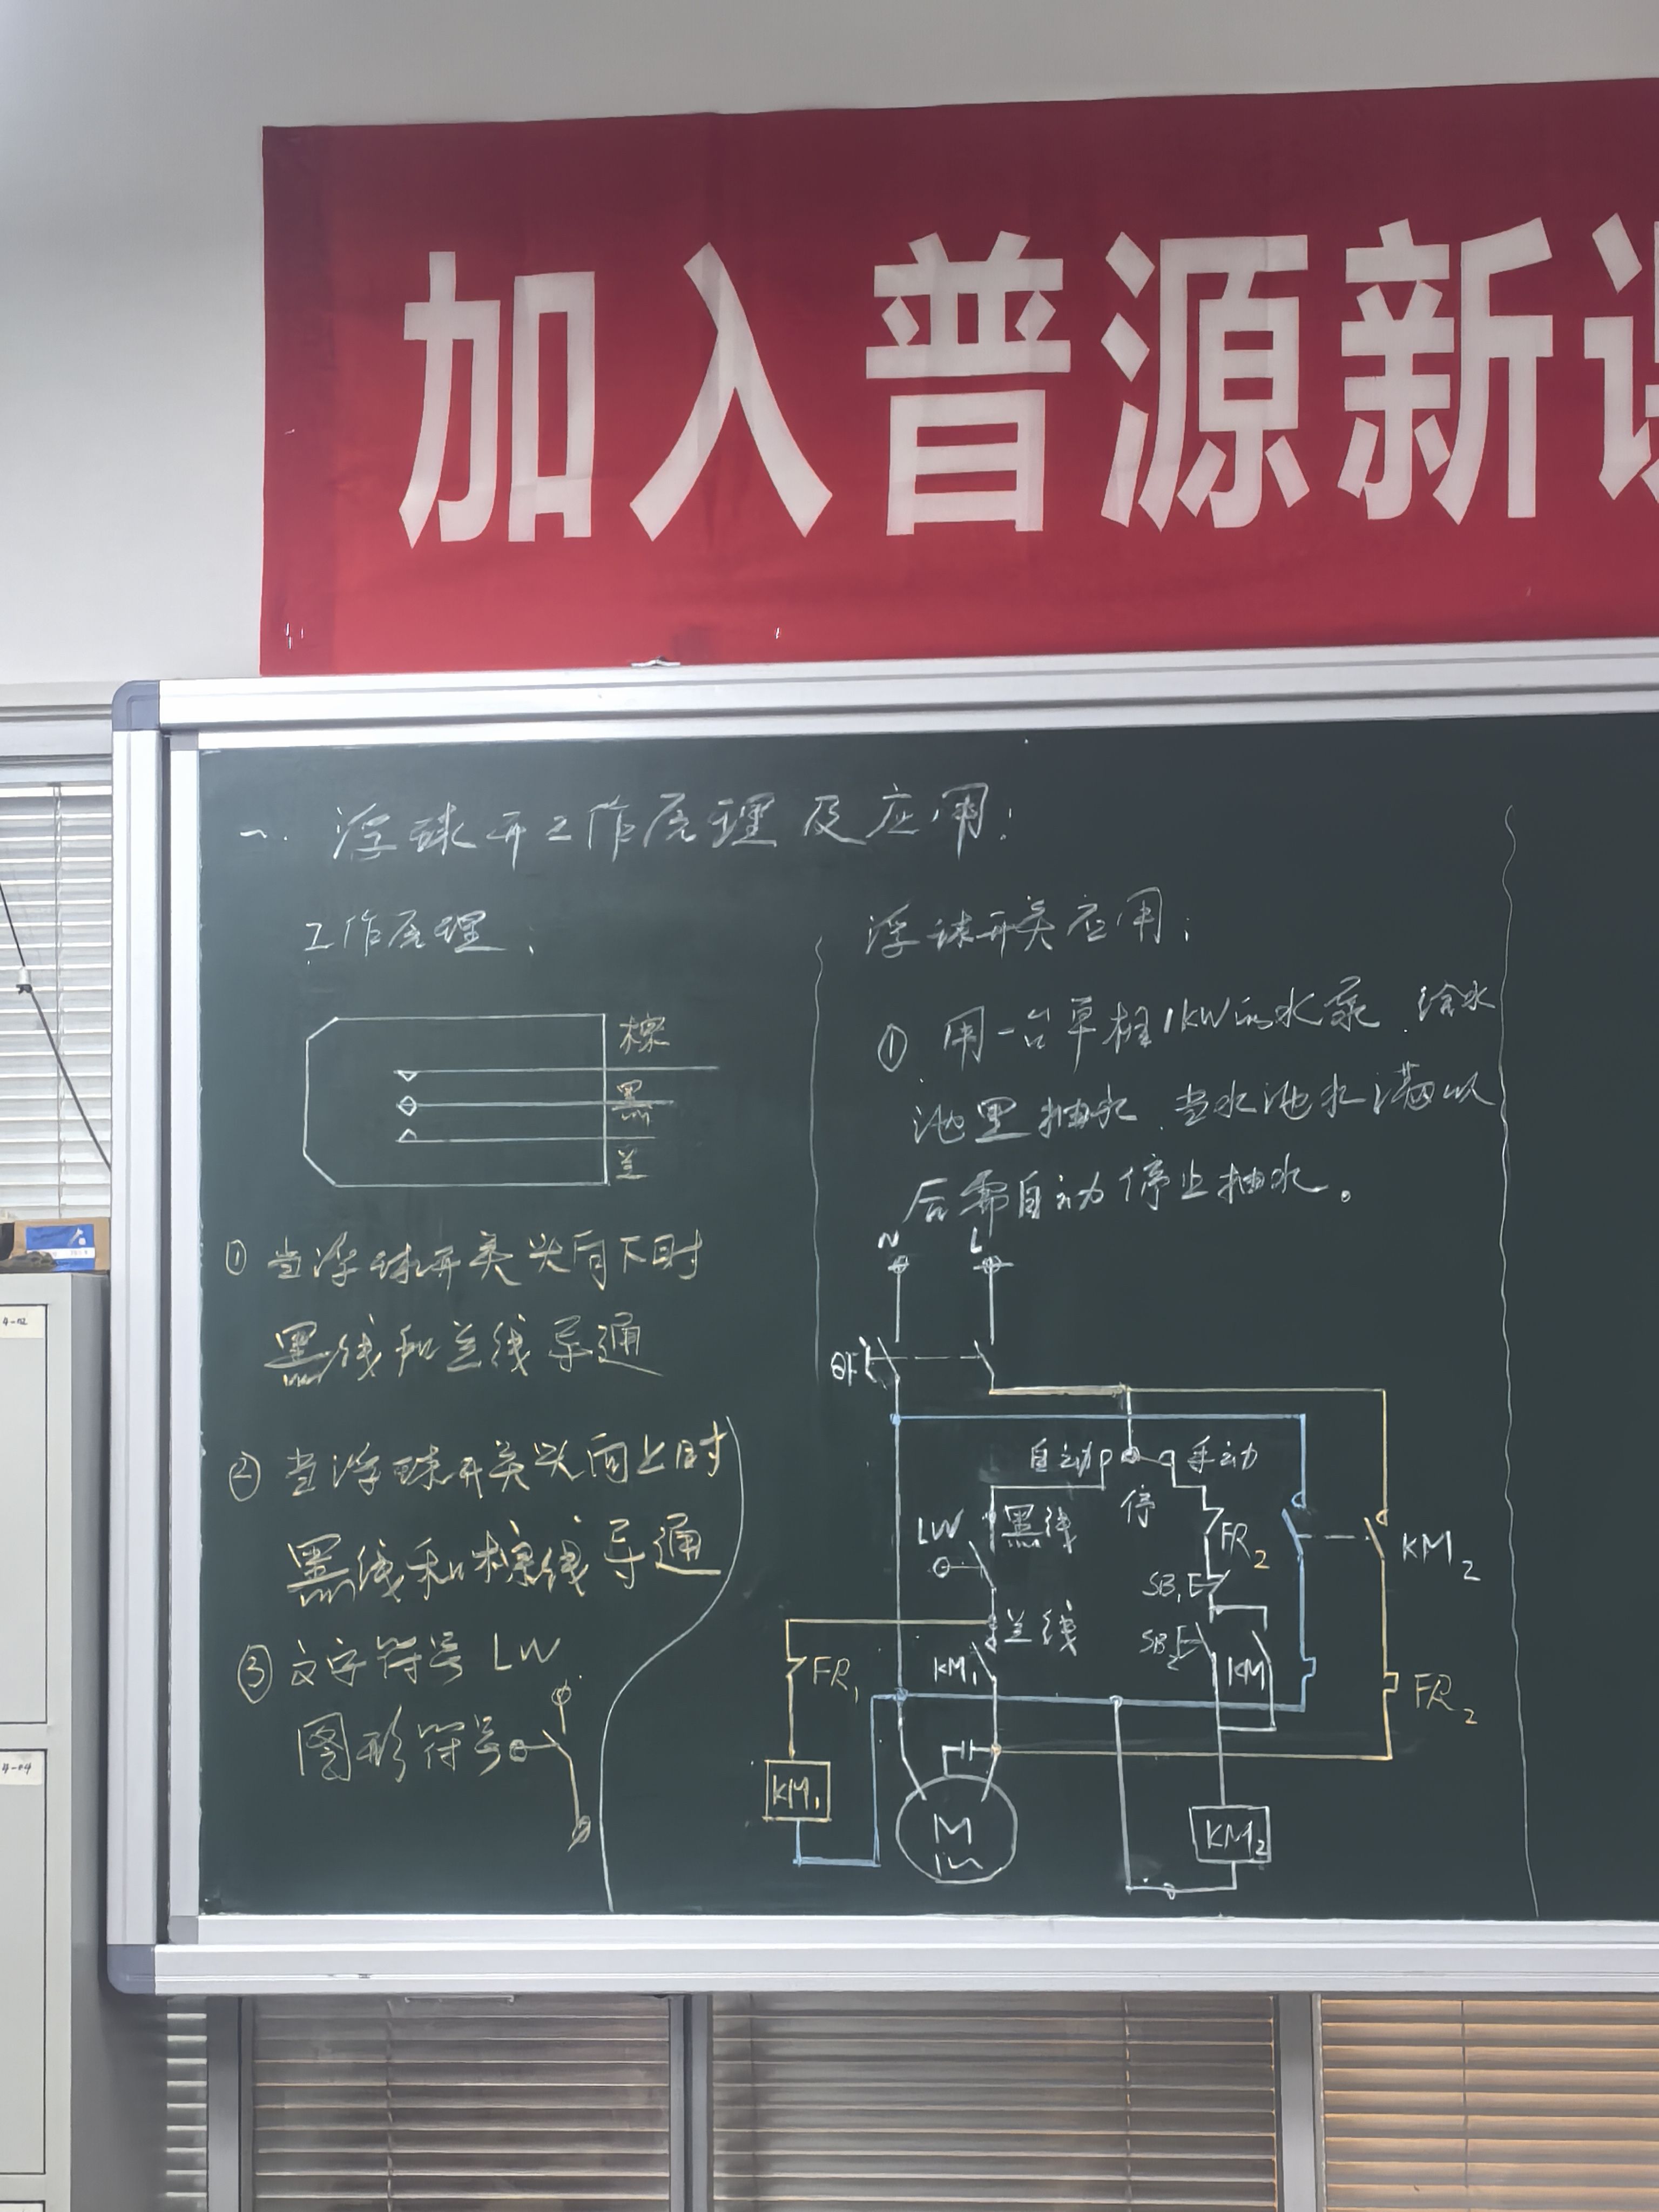 加入普源新
一. 浮球开工作原理及应用:
工作原理:
棕
黑
兰
① 当浮球开关头向下时
黑线和兰线导通
② 当浮球开关头向上时
黑线和棕线导通
③ 文字符号 LW
图形符号
浮球开关应用:
① 用一台单相1KW的水泵.给水
池里抽水.当水池水满以
后需自动停止抽水。
N L
QF
自动 手动
停
LW 黑线
FR2
KM2
SB1
兰线
SB2
KM1
KM
FR1
FR2
KM1
M
KM2
4-02
4-04